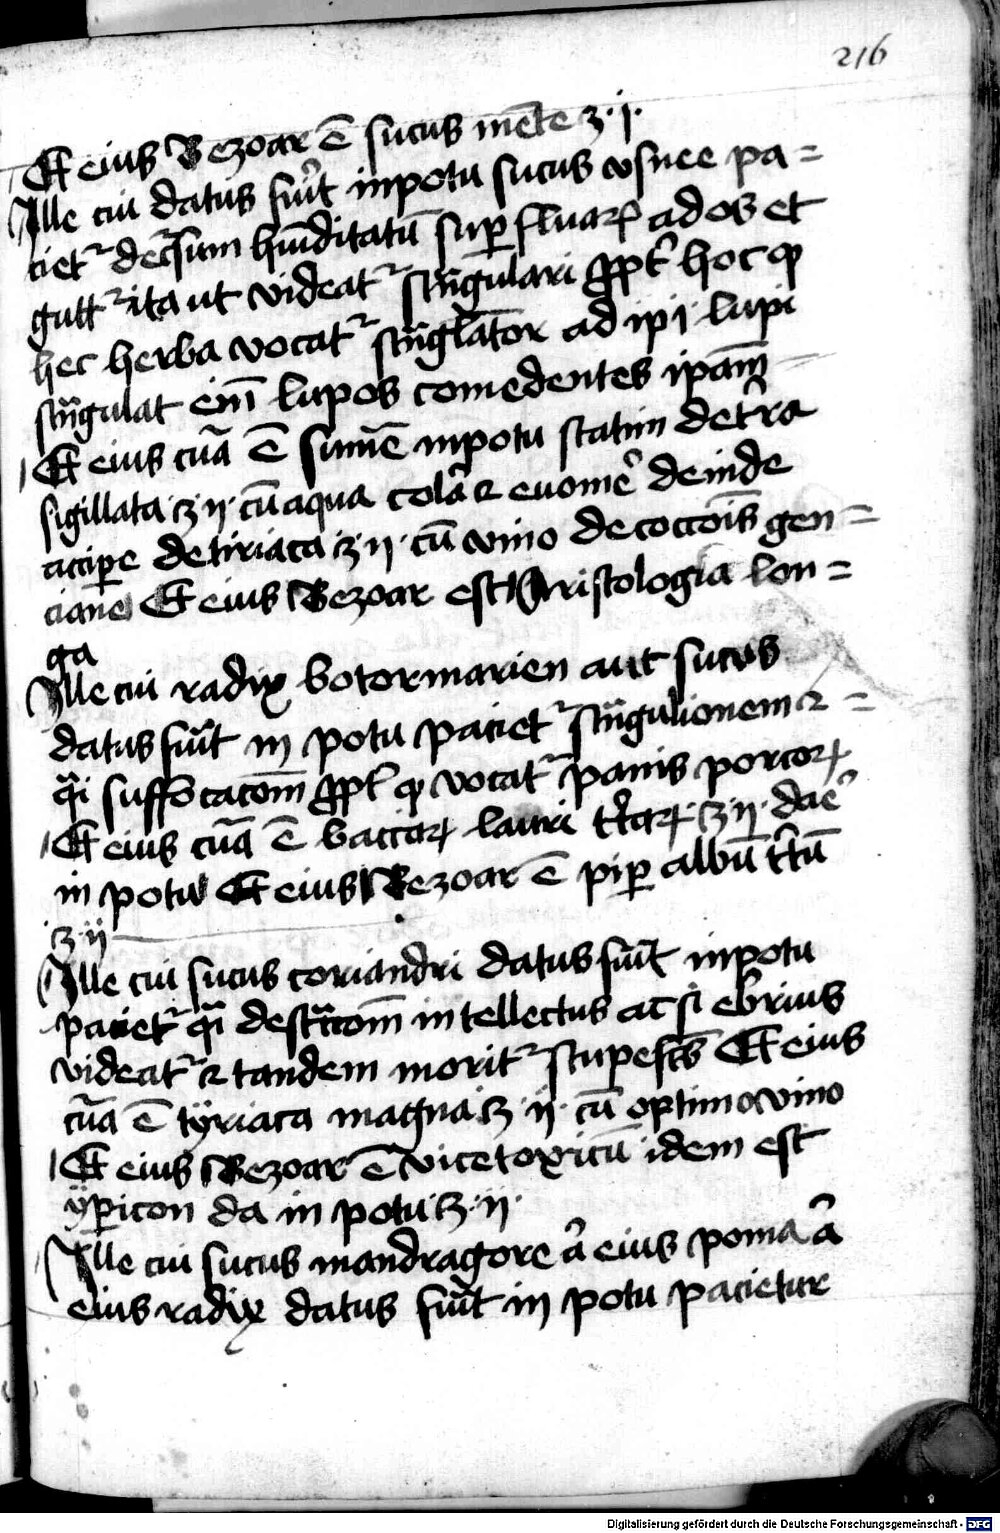 216
Et eius Bezoar ē sucus mēte ʒ·j·
Ille cui datus fuĩt inpotu sucus vsnee pa=
cietᷣ decͬsum hūiditatū suꝑ fluarꝝ ad os et
guttᷣ ita ut videatᷣ stͬngulari ꝓpt̉ hoc ꝙ
hec herba vocatᷣ stͬnglator ad ipi lupi
stͬngulat em̄ lupos comedentes ipam̄
Et eius cuͣa ē sum̄e inpotu statim de t̉ra
sigillata ʒ ij· cū aqua colaͣ ⁊ euome̓ deinde
accipe de tiriaca ʒ·ij· cū vino decoccōis gen=
ciane Et eius Bezoar est Aristologia lon=
ga
Ille cui radix botormarien aut sucus
datus fuĩt in potu pacietᷣ stͬngulionem ⁊ =
qͣi suffocacōm ꝓpt̉ ꝙ vocatᷣ panis porcorꝝ
Et eius cuͣa ē baccarꝝ lauri tͥtarꝝ ʒ·ij· dae̓
in potu Et eius Bezoar ē piꝑ albū tͥtū
ʒ·ij
Ille cui sucus coriandri datus fuĩt inpotu
pacietᷣ qͣi destͬccōm intellectus ac si ebrius
videatᷣ ⁊ tandem moritᷣ stupefcs̄ Et eius
cuͣa ē tÿriaca magna ʒ·ij· cū optimo vino
Et eius Bezoar ē vicetoxicū idem est
ÿꝑicon da in potu ʒ·ij·
Ille cui sucus mandragore aͣ eius poma aͣ
eius radix datus fuĩt in potu pacietur
Digitalisierung gefördert durch die Deutsche Forschungsgemeinschaft - DFG